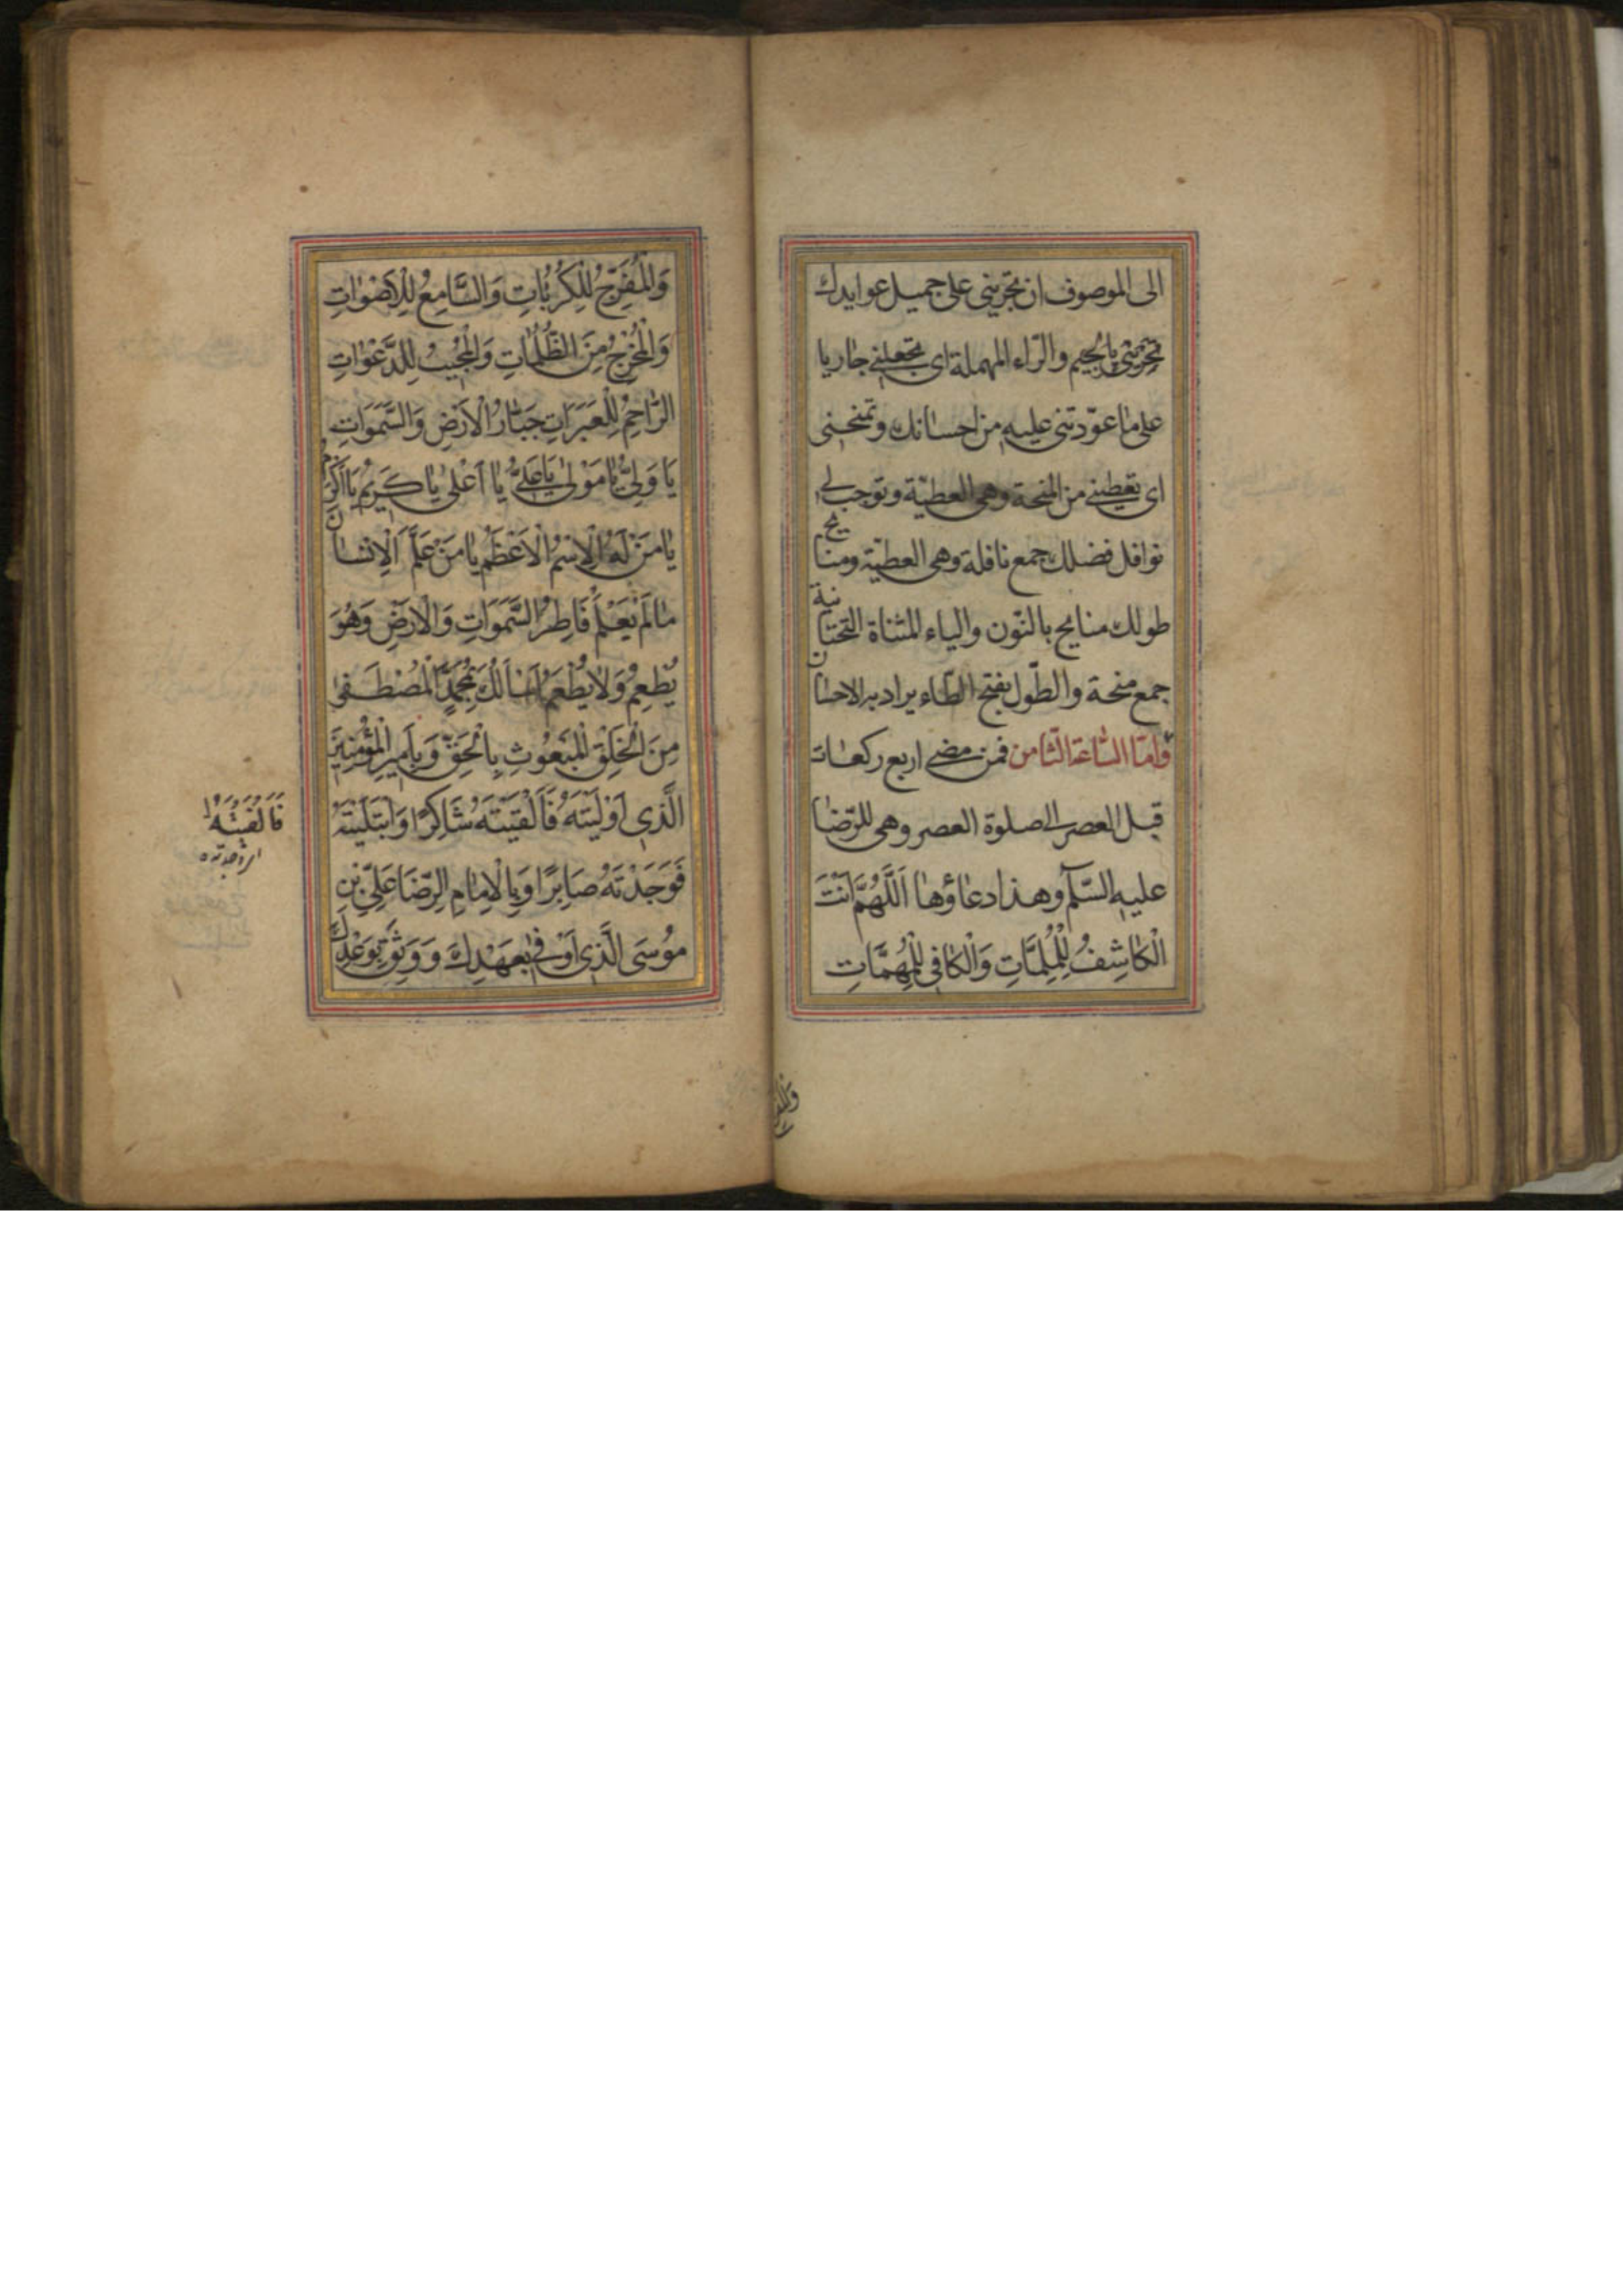 الى الموصوف ان تجريني على جميل عوايدك
تجريني بالجيم والرّاء المهملة اى تجعلني جاريا
على ما عوّدتنى عليه من احسانك وتمنحنى
اى تعطيني من المنحة وهى العطيّة وتوجب لي
نوافل فضلك جمع نافلة وهى العطيّة ومنايح
طولك منايح بالنّون والياء المثناة التحتانية
جمع منحة والطّول بفتح الطّاء يراد به الاحسان
وامّا السّاعة الثّامن فمن مضى اربع ركعات
قبل العصر الى صلوة العصر وهى للرّضا
عليه السّلام وهذا دعاؤها اَللَّهُمَّ اَنْتَ
الْكاشِفُ لِلْمُلِمَّاتِ وَالْكافِي لِلْمُهِمَّاتِ
وَالْمُفَرِّجُ لِلْكُرُبَاتِ وَالسَّامِعُ لِلْاَصْوَاتِ
وَالْمُخْرِجُ مِنَ الظُّلُمَاتِ وَالْمُجِيبُ لِلدَّعَوَاتِ
الرَّاحِمُ لِلْعَبَرَاتِ جَبَّارُ الْاَرْضِ وَالسَّمَوَاتِ
يَا وَلِيُّ يَا مَوْلٰى يَا عَلِيُّ يَا اَعْلٰى يَا كَرِيمُ يَا اَكْرَمُ
يَا مَنْ لَهُ الْاِسْمُ الْاَعْظَمُ يَا مَنْ عَلَّمَ الْاِنْسَانَ
مَا لَمْ يَعْلَمْ فَاطِرُ السَّمَوَاتِ وَالْاَرْضِ وَهُوَ
يُطْعِمُ وَلَا يُطْعَمُ اَسْاَلُكَ بِمُحَمَّدٍ الْمُصْطَفٰى
مِنَ الْخَلْقِ الْمَبْعُوثِ بِالْحَقِّ وَبِاَمِيرِ الْمُؤْمِنِينَ
الَّذِي اَوْلَيْتَهُ فَاَلْفَيْتَهُ شَاكِرًا وَابْتَلَيْتَهُ
فَوَجَدْتَهُ صَابِرًا وَبِالْاِمَامِ الرِّضَا عَلِيِّ بْنِ
مُوسَى الَّذِي اَوْفٰى بِعَهْدِكَ وَوَثِقَ بِوَعْدِكَ
فَاَلْفَيْتَهُ
اى وجدته